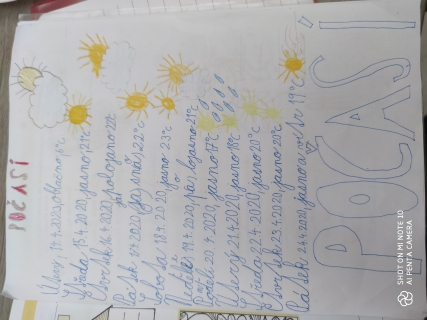 POČASÍ
Úterý, 14.4.2020, oblačno,
Středa 15.4.2020, jasno, 12°C
Čtvrtek 16.4.2020, polojasno 20°C
Pátek 17.4.2020, jasno, 22°C
Sobota 18.4.2020, jasno 23°C
Neděle 19.4.2020, polojasno 21°C
Pondělí 20.4.2020, jasno, 17°C
Úterý 21.4.2020, jasno 18°C
Středa 22.4.2020, jasno 20°C
Čtvrtek 23.4.2020, jasno 20°C
Pátek 24.4.2020, jasno 19°C
POČASÍ
SHOT ON MI NOTE 10
AI PENTA CAMERA